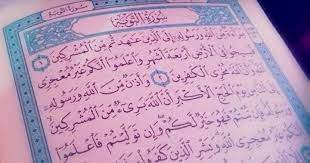 سورة التوبة
سُورَةُ التَّوْبَةِ
مِّنَ ٱللَّهِ وَرَسُولِهِۦٓ إِلَى ٱلَّذِينَ عَٰهَدتُّم مِّنَ ٱلْمُشْرِكِينَ ١
فَسِيحُوا۟ فِى ٱلْأَرْضِ أَرْبَعَةَ أَشْهُرٍ وَٱعْلَمُوٓا۟ أَنَّكُمْ غَيْرُ مُعْجِزِى
ٱللَّهِ وَأَنَّ ٱللَّهَ مُخْزِى ٱلْكَٰفِرِينَ ٢ وَأَذَٰنٌ مِّنَ ٱللَّهِ وَرَسُولِهِۦٓ
يَوْمَ ٱلْحَجِّ ٱلْأَكْبَرِ أَنَّ ٱللَّهَ بَرِىٓءٌ مِّنَ ٱلْمُشْرِكِينَ
تُبْتُمْ فَهُوَ خَيْرٌ لَّكُمْ وَإِن تَوَلَّيْتُمْ فَٱعْلَمُوٓا۟
مُعْجِزِى ٱللَّهِ وَبَشِّرِ ٱلَّذِينَ كَفَرُوا۟